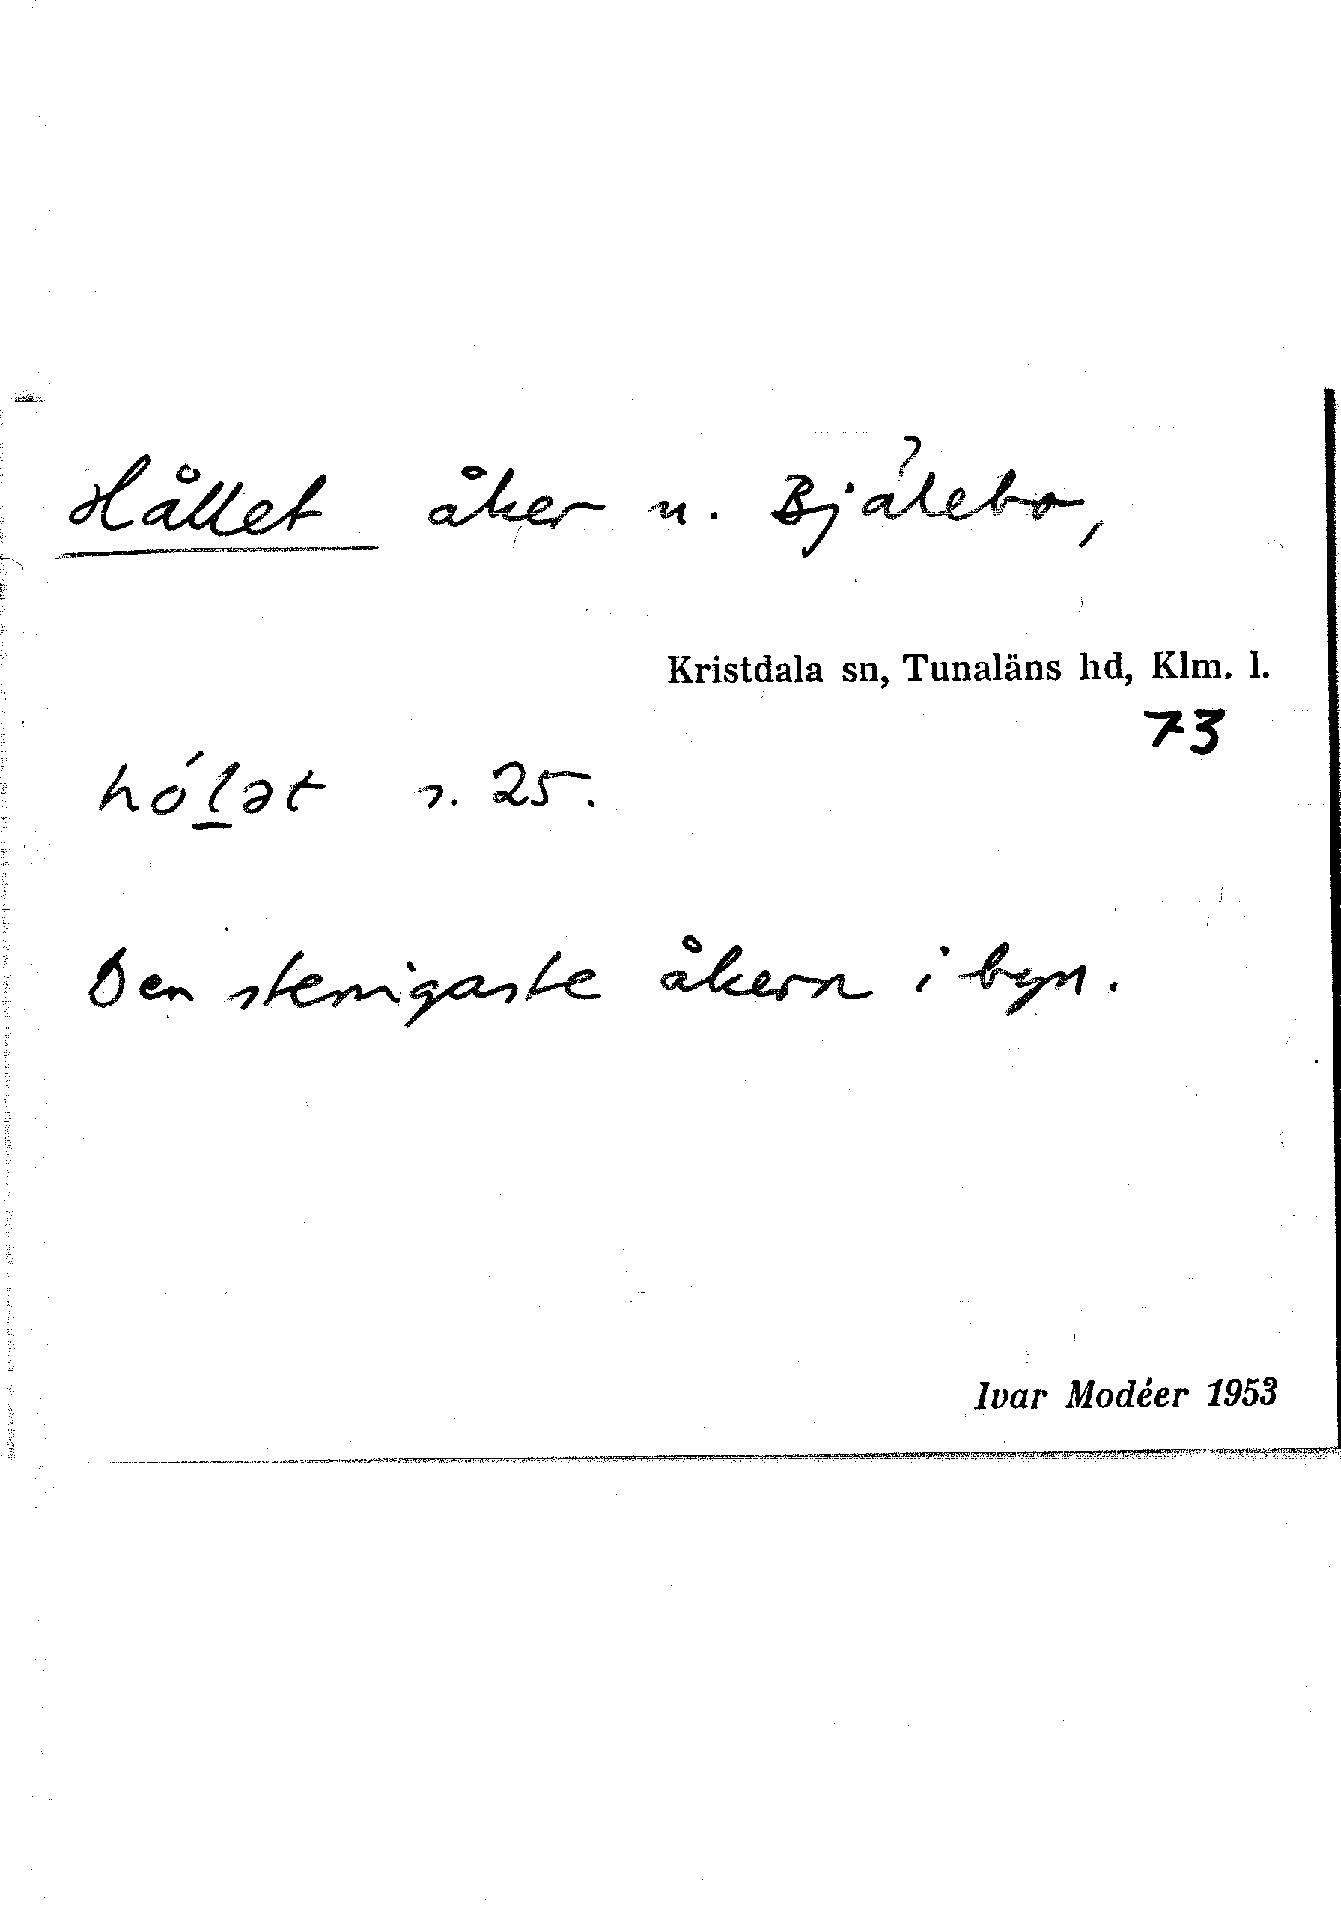 Hållet åker u. Bjälebo,
Kristdala sn, Tunaläns hd, Klm. l.
73
hólət s. 25.
Den stenigaste åkern i byn.
Ivar Modéer 1953